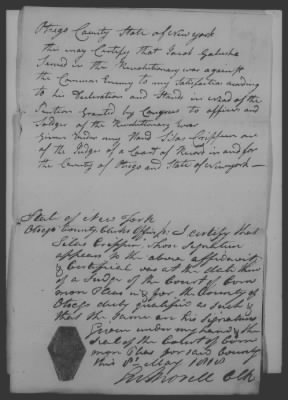 Otsego County State of New york
this may Certify that Jacob Galusha
Served in the Revolutionary war against
the Common Enemy to my Satisfaction according
to his Declaration and Stands in need of the
granted by Congress to officers and
Soldiers of the Revolutionary War
Given under my Hand Silas Crippen one
of the Judges of a Court of Record in and for
the County of Otsego and State of Newyork
State of New York
Otsego County Clerks Office I certify that
Silas Crippin whose signature
appears to the above affidavit
& Certificate was at the date thereof
a Judge of the Court of Com
mon Pleas in & for the County of
Otsego duly qualified as such &
that the same are his signatures
Given under my hand & the
seal of the Court of Com
mon Pleas for said County
this 8th May 1818
Clk